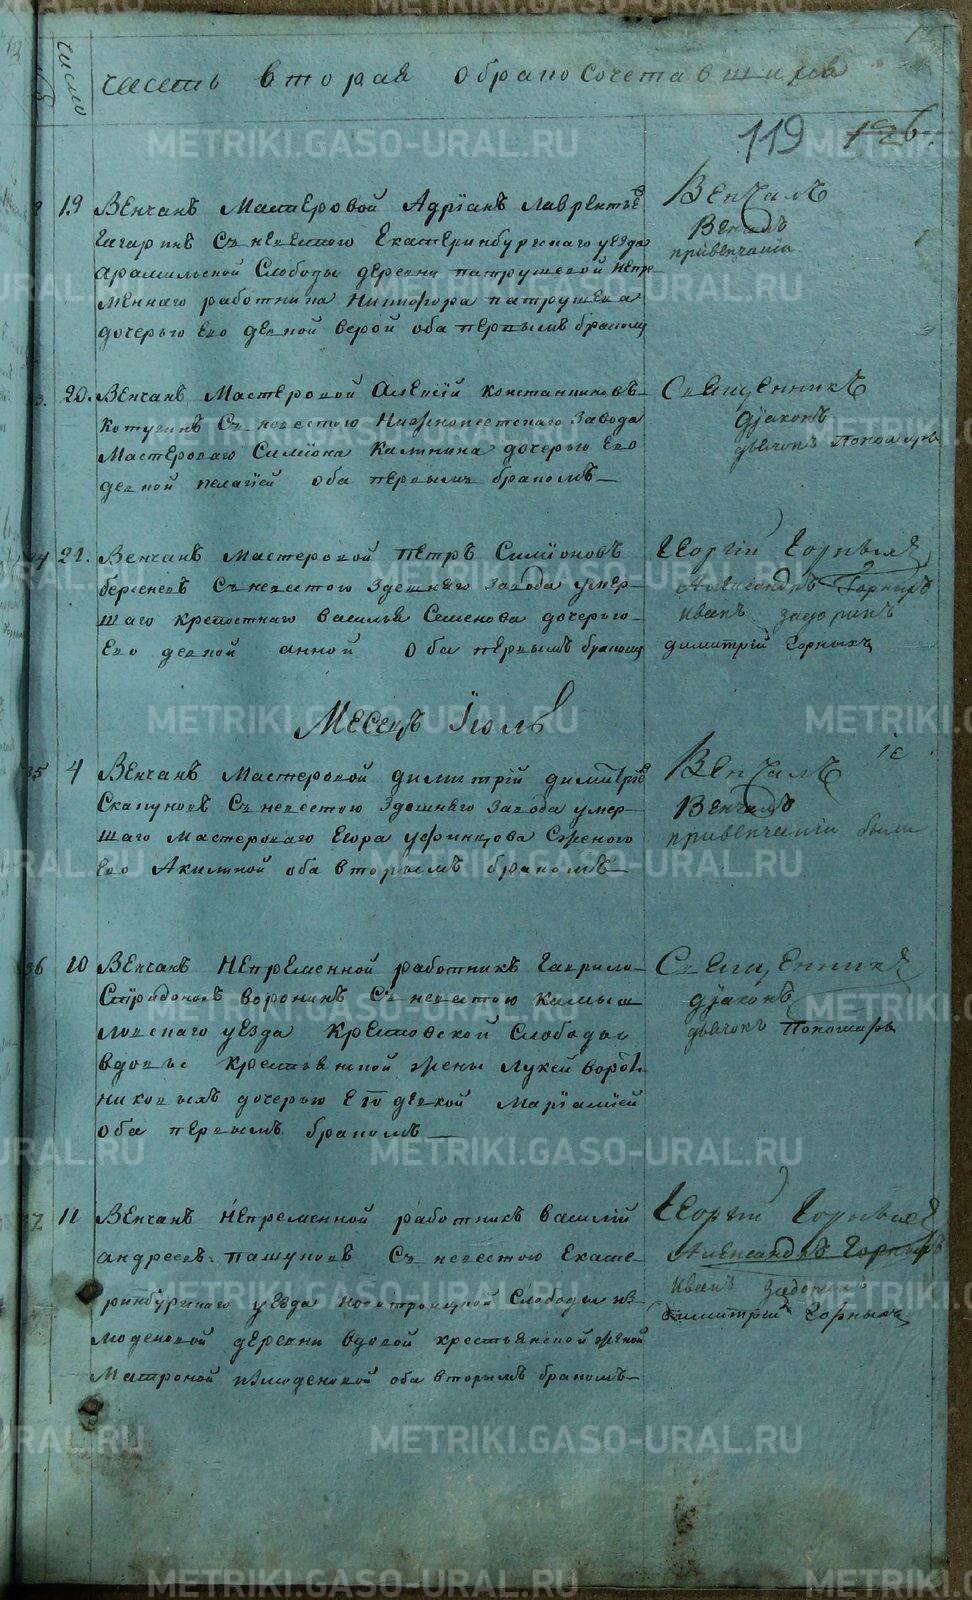 число
часть вторая о бракосочетавшихся
119 126.
19 Венчанъ Мастеровой Адрїанъ Лаврентьевъ
Гагаринъ Съ невестою Екатеринбургскаго уезда
Арамильской Слободы деревни патрушевой непре
меннаго работника Никифора патрушева
дочерью Его девкой верой оба первымъ бракомъ
Венчалъ
Венчалъ
привенчанїи
20. Венчанъ Мастеровой Алексїй константиновъ
Котугинъ Съ невестою Нижноисетскаго Завода
Мастероваго Симїона Калинина дочерью Его
девкой пелагїей оба первымъ бракомъ
Священникъ
дїаконъ
дьячокъ Пономарь
21. Венчанъ Мастеровой Петръ Симїоновъ
береневъ Съ невестою Здешняго Завода умер
шаго крепостнаго василья Семенова дочерью
Его девкой анной Оба первымъ бракомъ
Георгїй Горныхъ
Александръ Горныхъ
иванъ задоринъ
димитрїй Горныхъ
Месецъ Їюль
35 4 Венчанъ Мастеровой димитрїй димитрїевъ
Скапуновъ Съ невестою Здешняго Завода умер
шаго Мастероваго Егора уфинцова Сженою
Его Акилиной оба вторымъ бракомъ
Венчалъ
Венчалъ
привенчанїи были
36 10 Венчанъ Непременной работникъ Гаврило
Спиридоновъ воронинъ Съ невестою Камыш
ловскаго уезда Крестовской Слободы
вдовы крестьянской жены Лукеи ворон
никовыхъ дочерью Его девкой Марїамїей
оба первымъ бракомъ
Священникъ
дїаконъ
дьячокъ Пономарь
37 11 Венчанъ Непременной работникъ василїй
андреевъ пашуковъ Съ невестою Екате
ринбургскаго уезда новопышминской Слободы из
моденовой деревни вдовой крестьянской женой
Матроной измоденовой оба вторымъ бракомъ
Георгїй Горныхъ
Александръ Горныхъ
иванъ Задоринъ
Димитрїй Горныхъ
METRIKI.GASO-URAL.RU